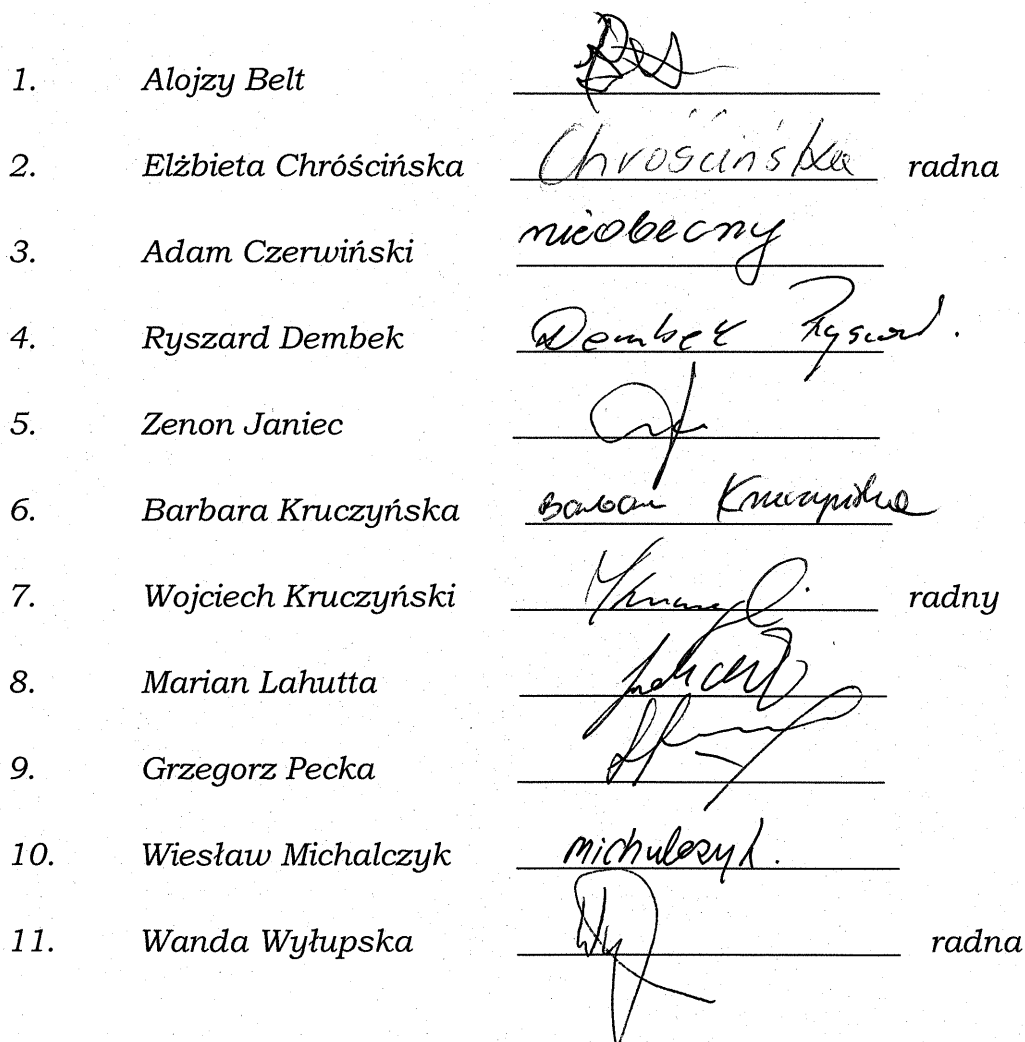 1. Alojzy Belt
2. Elżbieta Chróścińska Chrościńska radna
3. Adam Czerwiński nieobecny
4. Ryszard Dembek Dembek Ryszard.
5. Zenon Janiec
6. Barbara Kruczyńska Barbara Kruczyńska
7. Wojciech Kruczyński radny
8. Marian Lahutta
9. Grzegorz Pecka
10. Wiesław Michalczyk Michalczyk.
11. Wanda Wyłupska radna